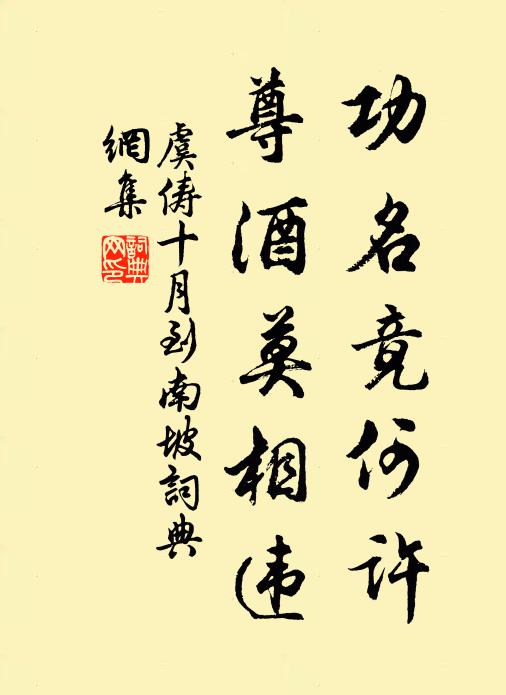 功名竟何许
尊酒莫相违
虞俦十月到南坡詞典
網集
詞典
网印